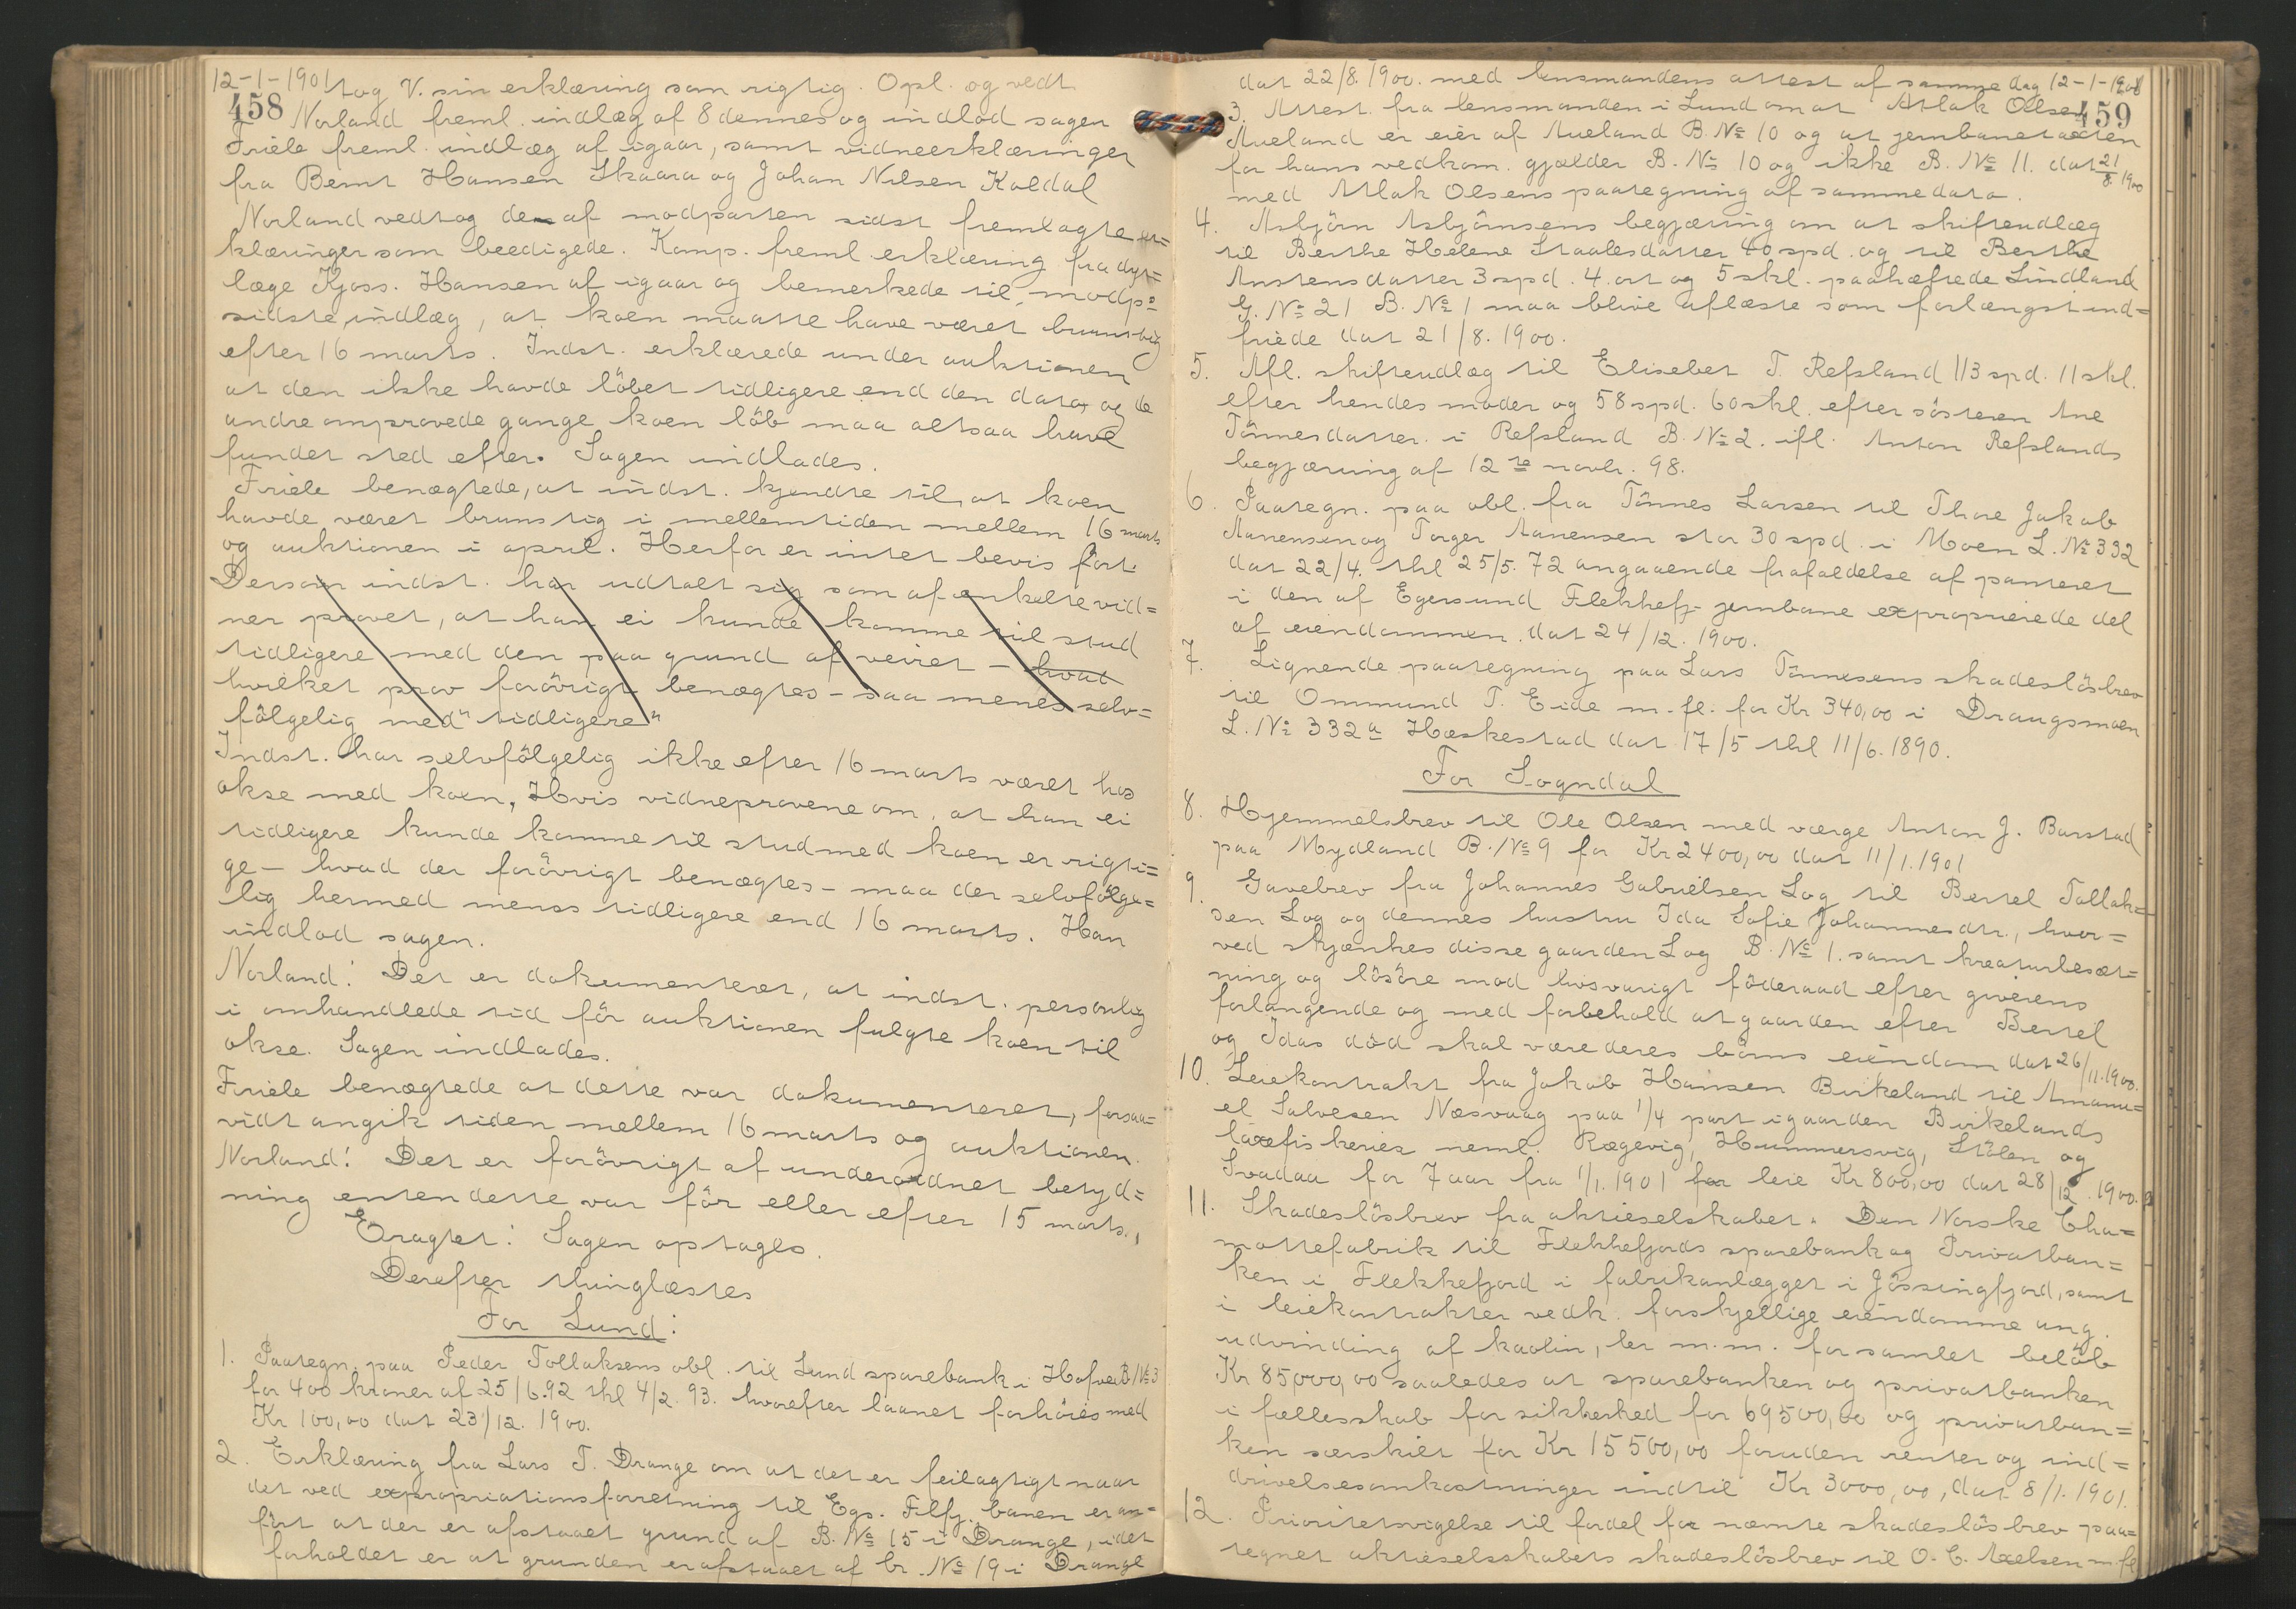 12-1-1901 tog V. sin erklæring som rigtig. Opl. og vedt
458 Norland freml. indlæg af 8 dennes og indlod sagen
Friele freml. indlæg af igaar, samt vidneerklæringer
fra Bernt Hansen Skaara og Johan Nilsen Koldal
Norland vedtog de af modparten sidst fremlagte er=
klæringer som beedigede. Komp. freml. erklæring fra dyr=
læge Kjoss. Hansen af igaar og bemerkede til modp=
sidste indlæg, at koen maatte have været brunstig
efter 16 marts. Indst. erklærede under auktionen
at den ikke havde löbet tidligere end den dato og de
andre omprovede gange koen löb maa altsaa have
fundet sted efter. Sagen indlades.
Friele benægtede, at indst. kjendte til, at koen
havde været brunstig i mellemtiden mellem 16 marts
og auktionen i april. Herfor er intet bevis fört.
Dersom indst. har udtalt sig som af enkelte vid=
ner provet, at han ei kunde komme til stud
tidligere med den paa grund af veiret – hvad
hvilket prov forövrigt benægtes – saa menes selv=
fölgelig med "tidligere"
Indst. har selvfölgelig ikke efter 16 marts været hos
okse med koen. Hvis vidneprovene om, at han ei
tidligere kunde komme til stud med koen er rigti=
ge – hvad der forövrigt benægtes – maa der selvfölge=
lig hermed menes tidligere end 16 marts. Han
indlod sagen.
Norland: Det er dokumenteret, at indst. personlig
i omhandlede tid för auktionen fulgte koen til
okse. Sagen indlades.
Friele benægtede at dette var dokumenteret, forsaa=
vidt angik tiden mellem 16 marts og auktionen.
Norland: Det er forövrigt af underordnet betyd=
ning enten dette var för eller efter 15 marts.,
Eragtet: Sagen optages.
Derefter thinglæstes
For Lund:
1. Paategn. paa Peder Tollaksens obl. til Lund sparebank i Hofvei B.№ 3
for 400 kroner af 25/6.92 thl 4/2. 93. hvorefter laanet forhöies med
Kr 100,00 dat 23/12. 1900.
2. Erklæring fra Lars T. Drange om at det er feilagtigt naar
det ved expropriationsforretning til Egs. Flfj. banen er an=
fört at der er afstaaet grund af B. № 15 i Drange, idet
forholdet er at grunden er afstaaet af br. № 19 i Drange
dat 22/8. 1900. med lensmandens attest af samme dag 12-1-1901
3. Attest fra lensmanden i Lund om at Atlak Olsen 459
Aueland er eier af Aueland B. № 10 og at jernbanetaxten
for hans vedkom. gjælder B. № 10 og ikke B. № 11. dat 21/8 1900
med Atlak Olsens paategning af samme dato.
4. Asbjörn Asbjörnsens begjæring om at skifteudlæg
til Berthe Helene Staalesdatter 40 spd. og til Berthe
Austensdatter 3 spd. 4. ort og 5 skl. paaheftede Lindland
G. № 21 B. № 1 maa blive aflæste som forlængst ind=
friede dat 21/8. 1900.
5. Afl. skifteudlæg til Elisebet T. Refsland 113 spd. 11 skl.
efter hendes moder og 58 spd. 60 skl. efter sösteren Ane
Tönnesdatter i Refsland B. № 2. ifl. Anton Refslands
begjæring af 12te novbr. 98.
6. Paategn. paa obl. fra Tönnes Larsen til Thore Jakob
Aanensen og Torger Aanensen stor 30 spd. i Moen L. № 332
dat 22/4. thl 25/5. 72 angaaende frafaldelse af panteret
i den af Egersund Flekkefj- jernbane exproprierede del
af eiendommen. dat 24/12. 1900.
7. Lignende paategning paa Lars Tönnesens skadeslösbrev
til Ommund T. Eide m. fl. for Kr 340,00 i Draugsmoen
L. № 332a Heskestad dat 17/5 thl 11/6. 1890.
For Sogndal
8. Hjemmelsbrev til Ole Olsen med værge Anton J. Barstad
paa Mydland B. № 9 for Kr 2400,00 dat 11/1. 1901
9. Gavebrev fra Johannes Gabrielsen Log til Bertel Tollak=
sen Log og dennes hustru Ida Sofie Johannesdtr., hvor=
ved skjænkes disse gaarden Log B. № 1. samt kreaturbesæt=
ning og lösöre mod livsvarigt föderaad efter giverens
forlangende og med forbehold at gaarden efter Bertel
og Idas död skal være deres börns eiendom dat 26/11. 1900.
10. Leiekontrakt fra Jakob Hansen Birkeland til Amanu=
el Salvesen Næsvaag paa 1/4 part i gaarden Birkelands
laxefiskerier neml. Rægevig, Hummersvig, Stölen og
Svadaa for 7 aar fra 1/1. 1901 for leie Kr 800,00 dat 28/12. 1900.
11. Skadeslösbrev fra aktieselskabet. Den Norske Cha=
mottefabrik til Flekkefjords sparebank og Privatban=
ken i Flekkefjord i fabrikanlægget i Jössingfjord, samt
i leiekontrakter vedk. forskjellige eiendomme ang.
udvinding af kaolin, ler m.m. for samlet belöb
Kr 85,000,00 saaledes at sparebanken og privatbanken
i fællesskab for sikkerhed for 69500,00 og privatban=
ken særskilt for Kr 15500,00 foruden renter og ind=
drivelsesomkostninger indtil Kr 3000,00, dat 8/1. 1901.
12. Prioritetsvigelse til fordel for nævnte skadeslösbrev paa=
tegnet aktieselsskabets skadeslösbrev til O. C. Axelsen m. fl